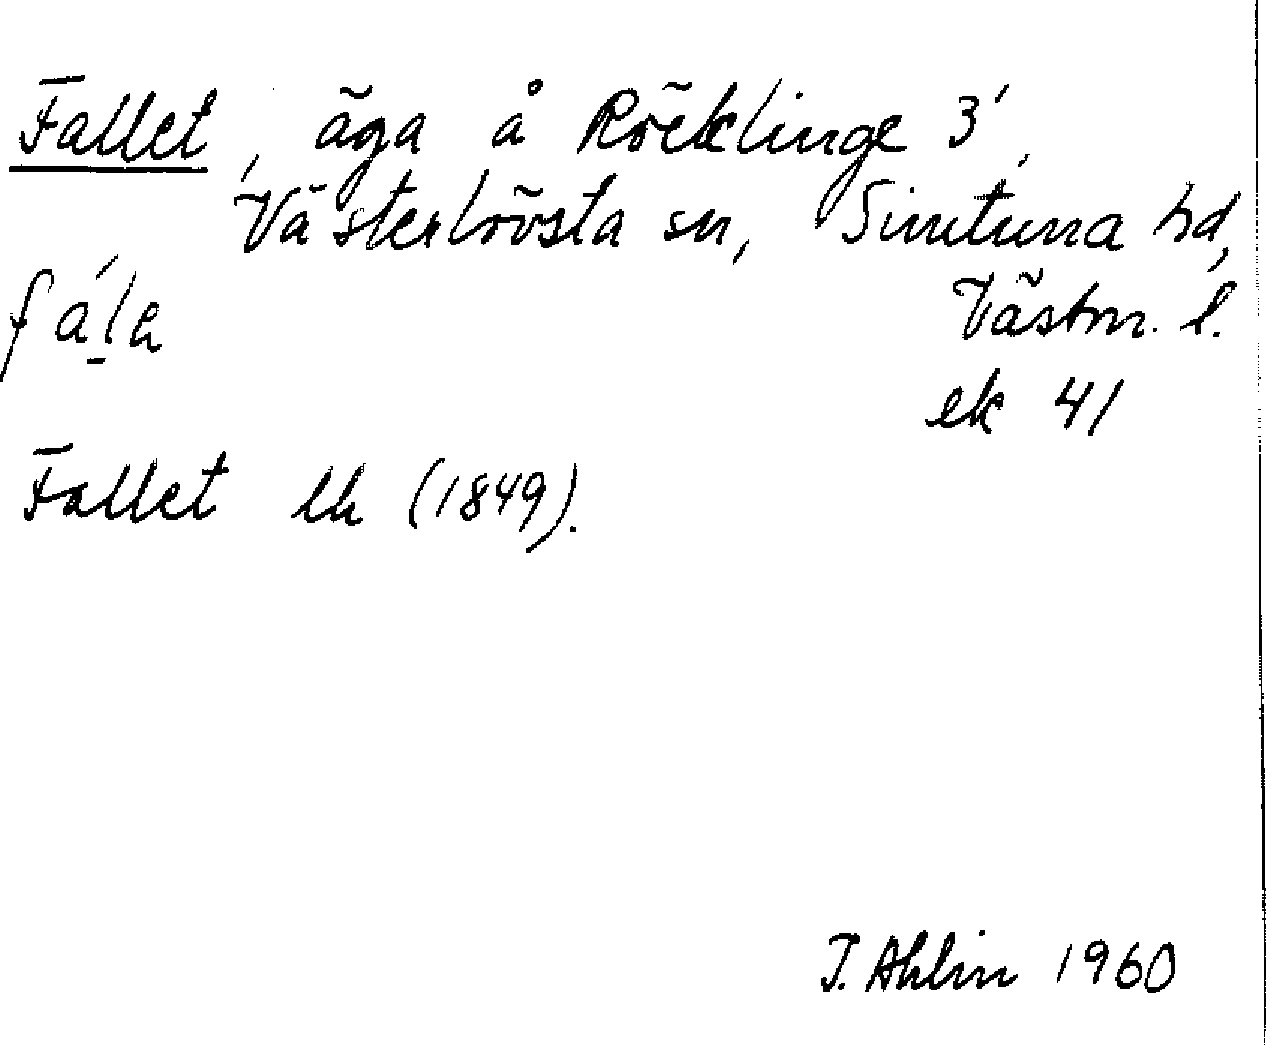 Fallet, äga å Röcklinge 3',
Västerlövsta sn, Simtuna hd,
Västm. l.
ek 41
Fallet lh (1849).
T. Ahlin 1960